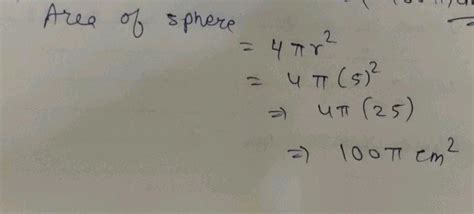 Area of sphere
= 4πr²
= 4π(5)²
⇒ 4π(25)
⇒ 100π cm²